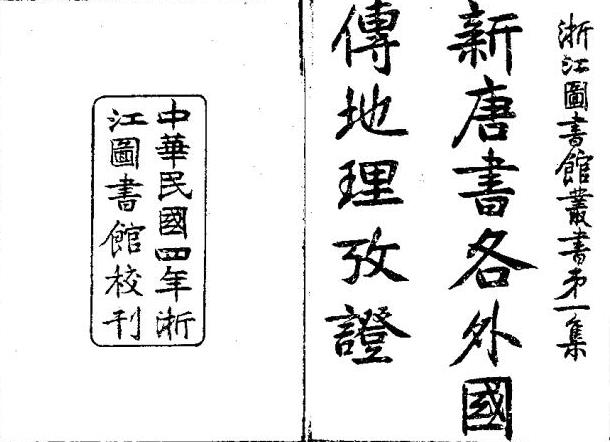 浙江圖書館叢書第一集
新唐書各外國
傳地理攷證
中華民國四年浙
江圖書館校刊